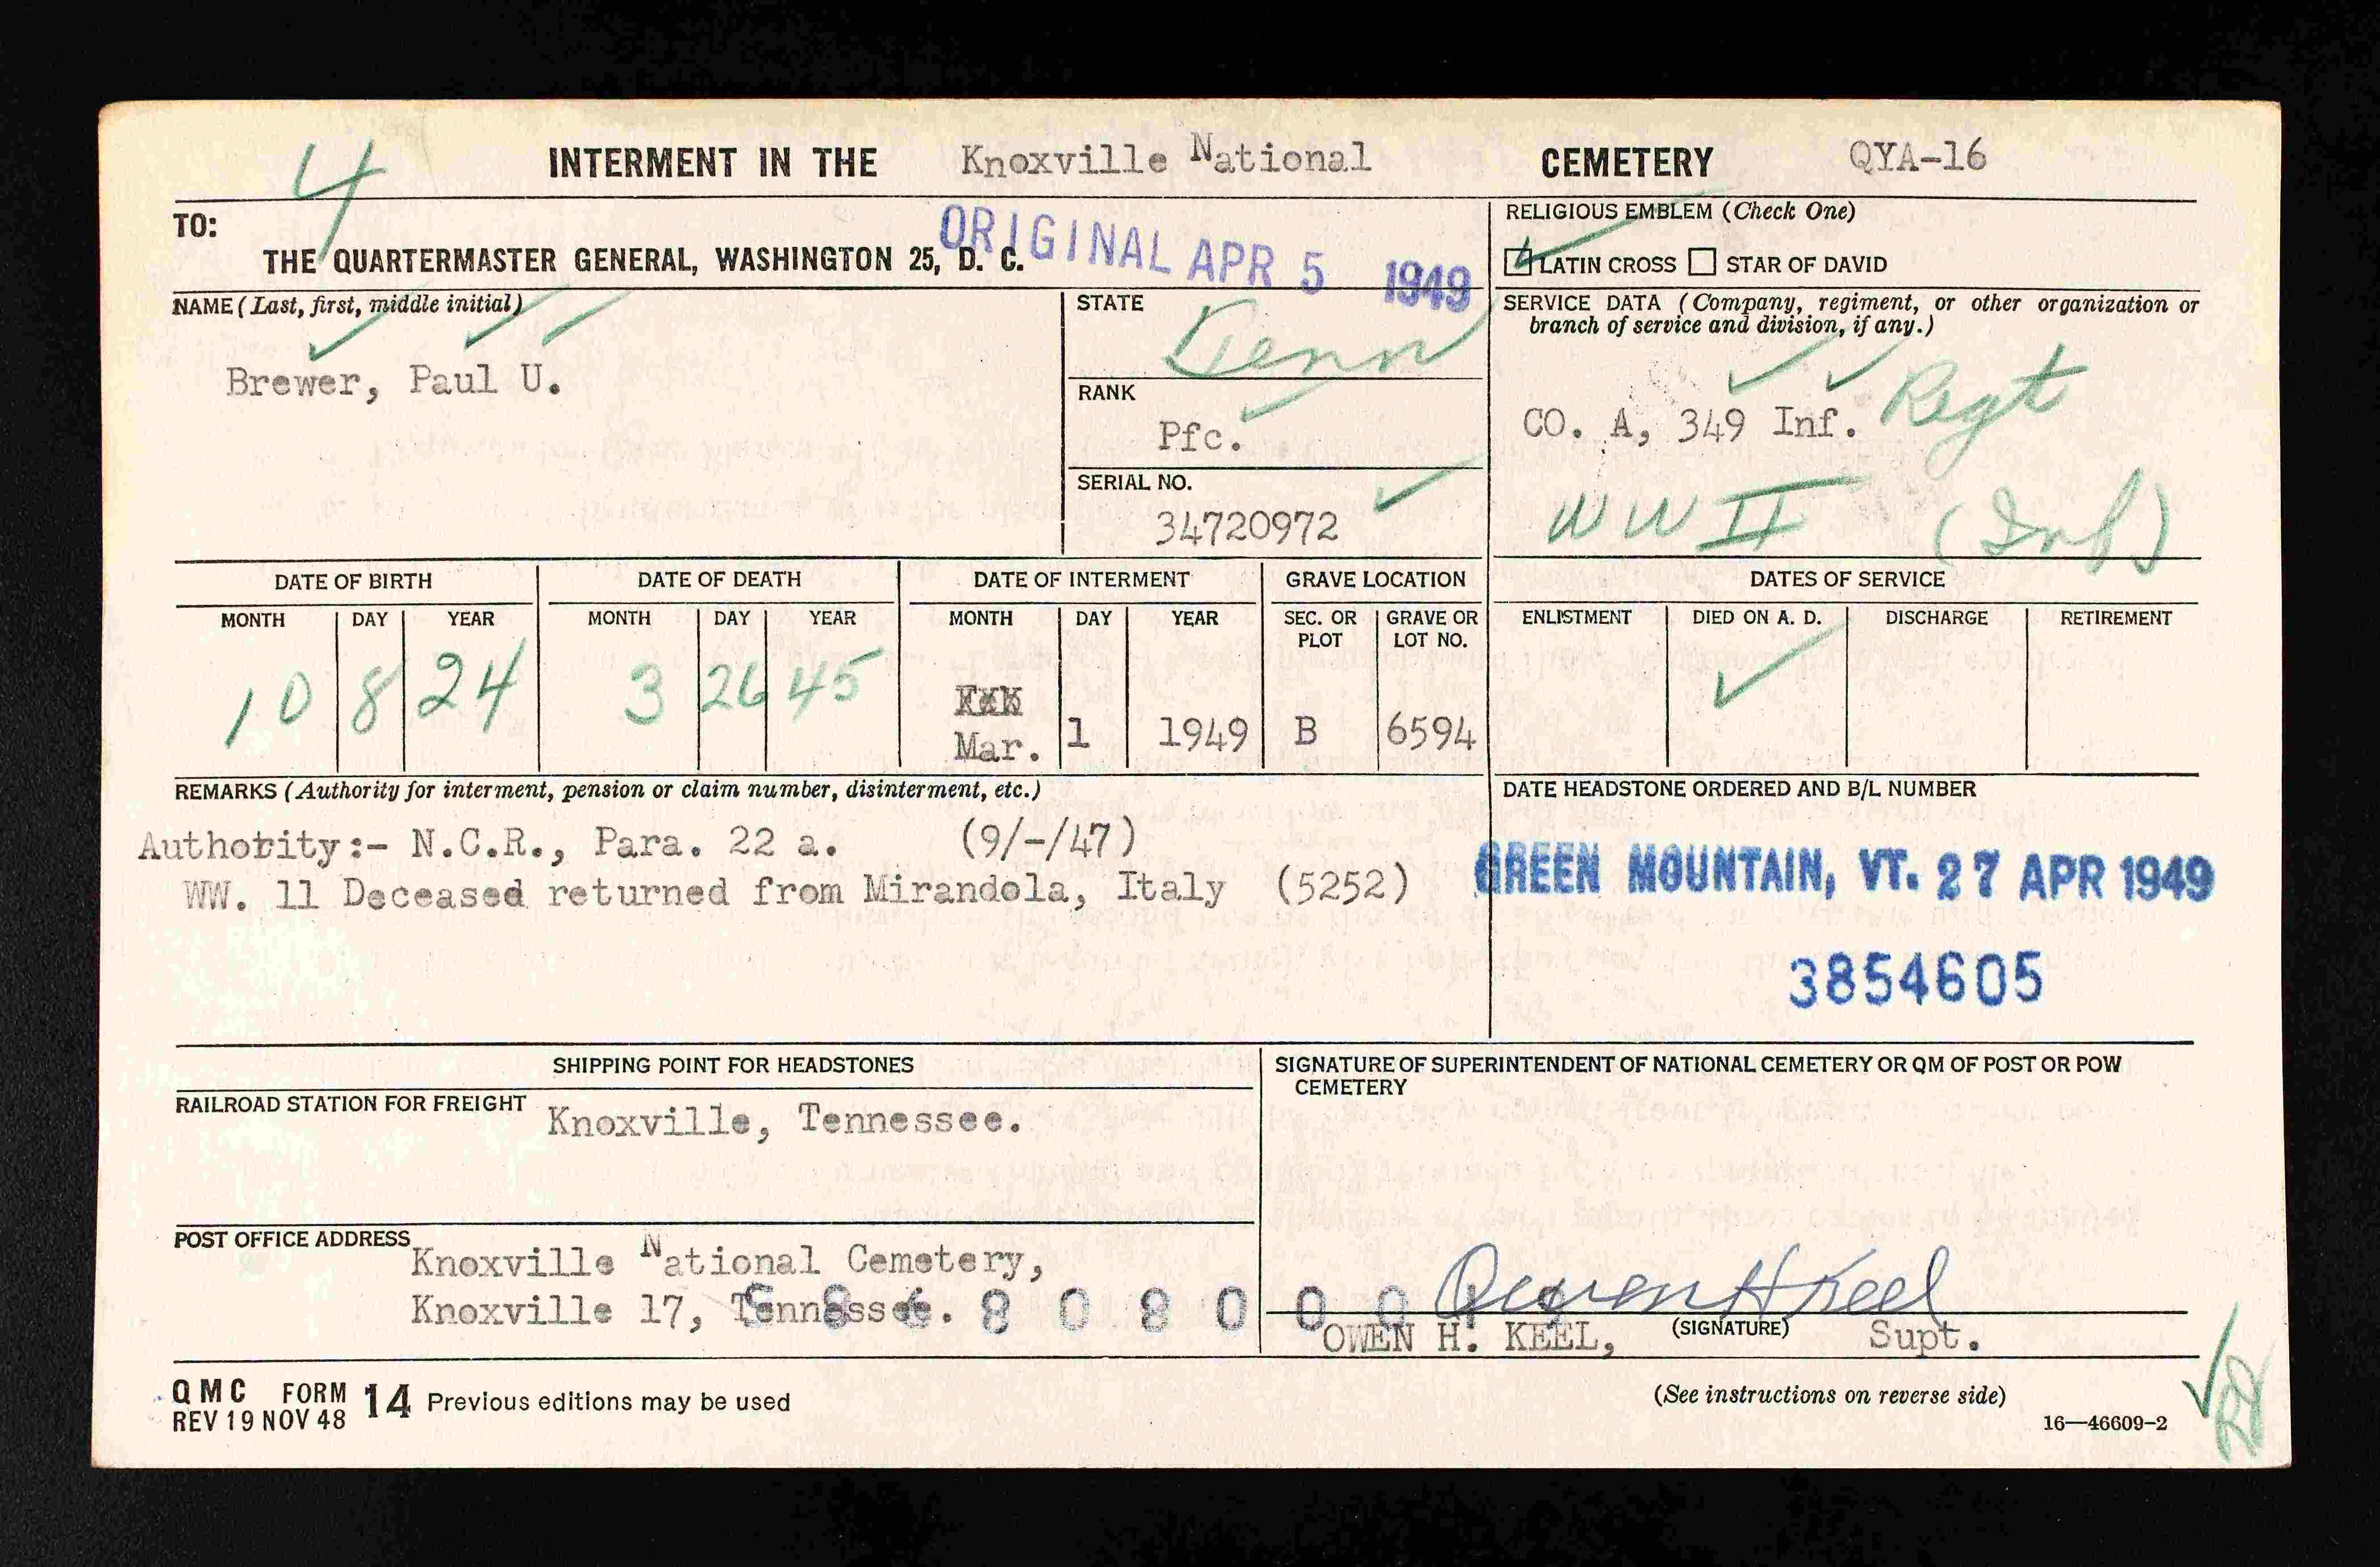 4
INTERMENT IN THE Knoxville National CEMETERY QYA-16
TO:
THE QUARTERMASTER GENERAL, WASHINGTON 25, D. C.
ORIGINAL APR 5 1949
RELIGIOUS EMBLEM (Check One)
LATIN CROSS STAR OF DAVID
NAME (Last, first, middle initial)
Brewer, Paul U.
STATE
Tenn
RANK
Pfc.
SERIAL NO.
34720972
SERVICE DATA (Company, regiment, or other organization or
branch of service and division, if any.)
CO. A, 349 Inf. Regt
WW II (Inf)
DATE OF BIRTH DATE OF DEATH DATE OF INTERMENT GRAVE LOCATION DATES OF SERVICE
MONTH DAY YEAR MONTH DAY YEAR MONTH DAY YEAR SEC. OR PLOT GRAVE OR LOT NO. ENLISTMENT DIED ON A. D. DISCHARGE RETIREMENT
10 8 24 3 26 45 Mar. 1 1949 B 6594
REMARKS (Authority for interment, pension or claim number, disinterment, etc.)
Authority:- N.C.R., Para. 22 a. (9/-/47)
WW. 11 Deceased returned from Mirandola, Italy (5252)
DATE HEADSTONE ORDERED AND B/L NUMBER
GREEN MOUNTAIN, VT. 27 APR 1949
3854605
SHIPPING POINT FOR HEADSTONES
RAILROAD STATION FOR FREIGHT Knoxville, Tennessee.
POST OFFICE ADDRESS
Knoxville National Cemetery,
Knoxville 17, Tennessee.
SIGNATURE OF SUPERINTENDENT OF NATIONAL CEMETERY OR QM OF POST OR POW
CEMETERY
Owen H Keel
OWEN H. KEEL, (SIGNATURE) Supt.
QMC FORM 14 Previous editions may be used
REV 19 NOV 48
(See instructions on reverse side)
16—46609-2